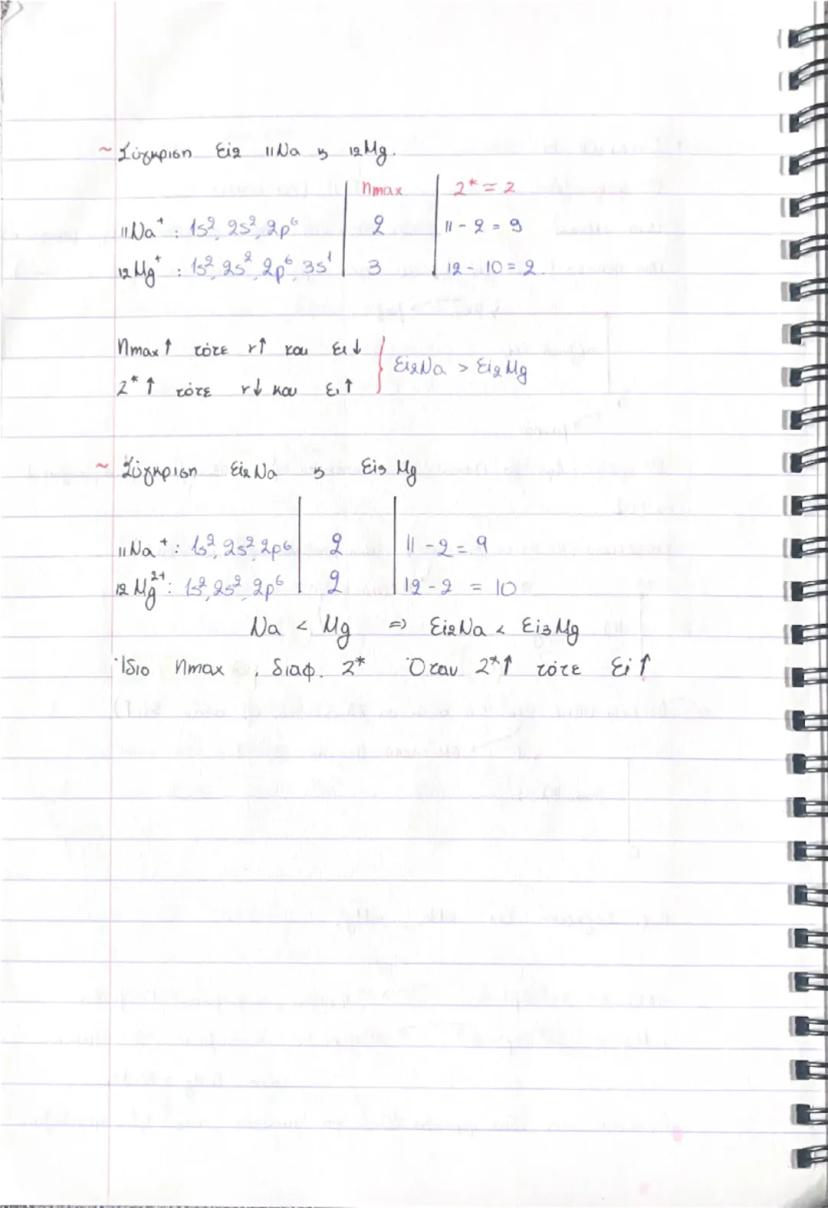 ~ Σύγκριση Ei2 11Na κ 12Mg.
nmax Z* = Z
11Na⁺ : 1s², 2s², 2p⁶ 2 11 - 2 = 9
12Mg⁺ : 1s², 2s², 2p⁶, 3s¹ 3 12 - 10 = 2.
nmax ↑ τότε r↑ και Ei ↓
Ei2Na > Ei2Mg
Z* ↑ τότε r↓ και Ei ↑
~ Σύγκριση Ei2 Na κ Ei3 Mg
11Na⁺ : 1s², 2s², 2p⁶ 2 11 - 2 = 9
12Mg²⁺ : 1s², 2s², 2p⁶ 2 12 - 2 = 10
Na < Mg => Ei2Na < Ei3Mg
Ίδιο nmax , διαφ. Z* Όταν Z*↑ τότε Ei ↑